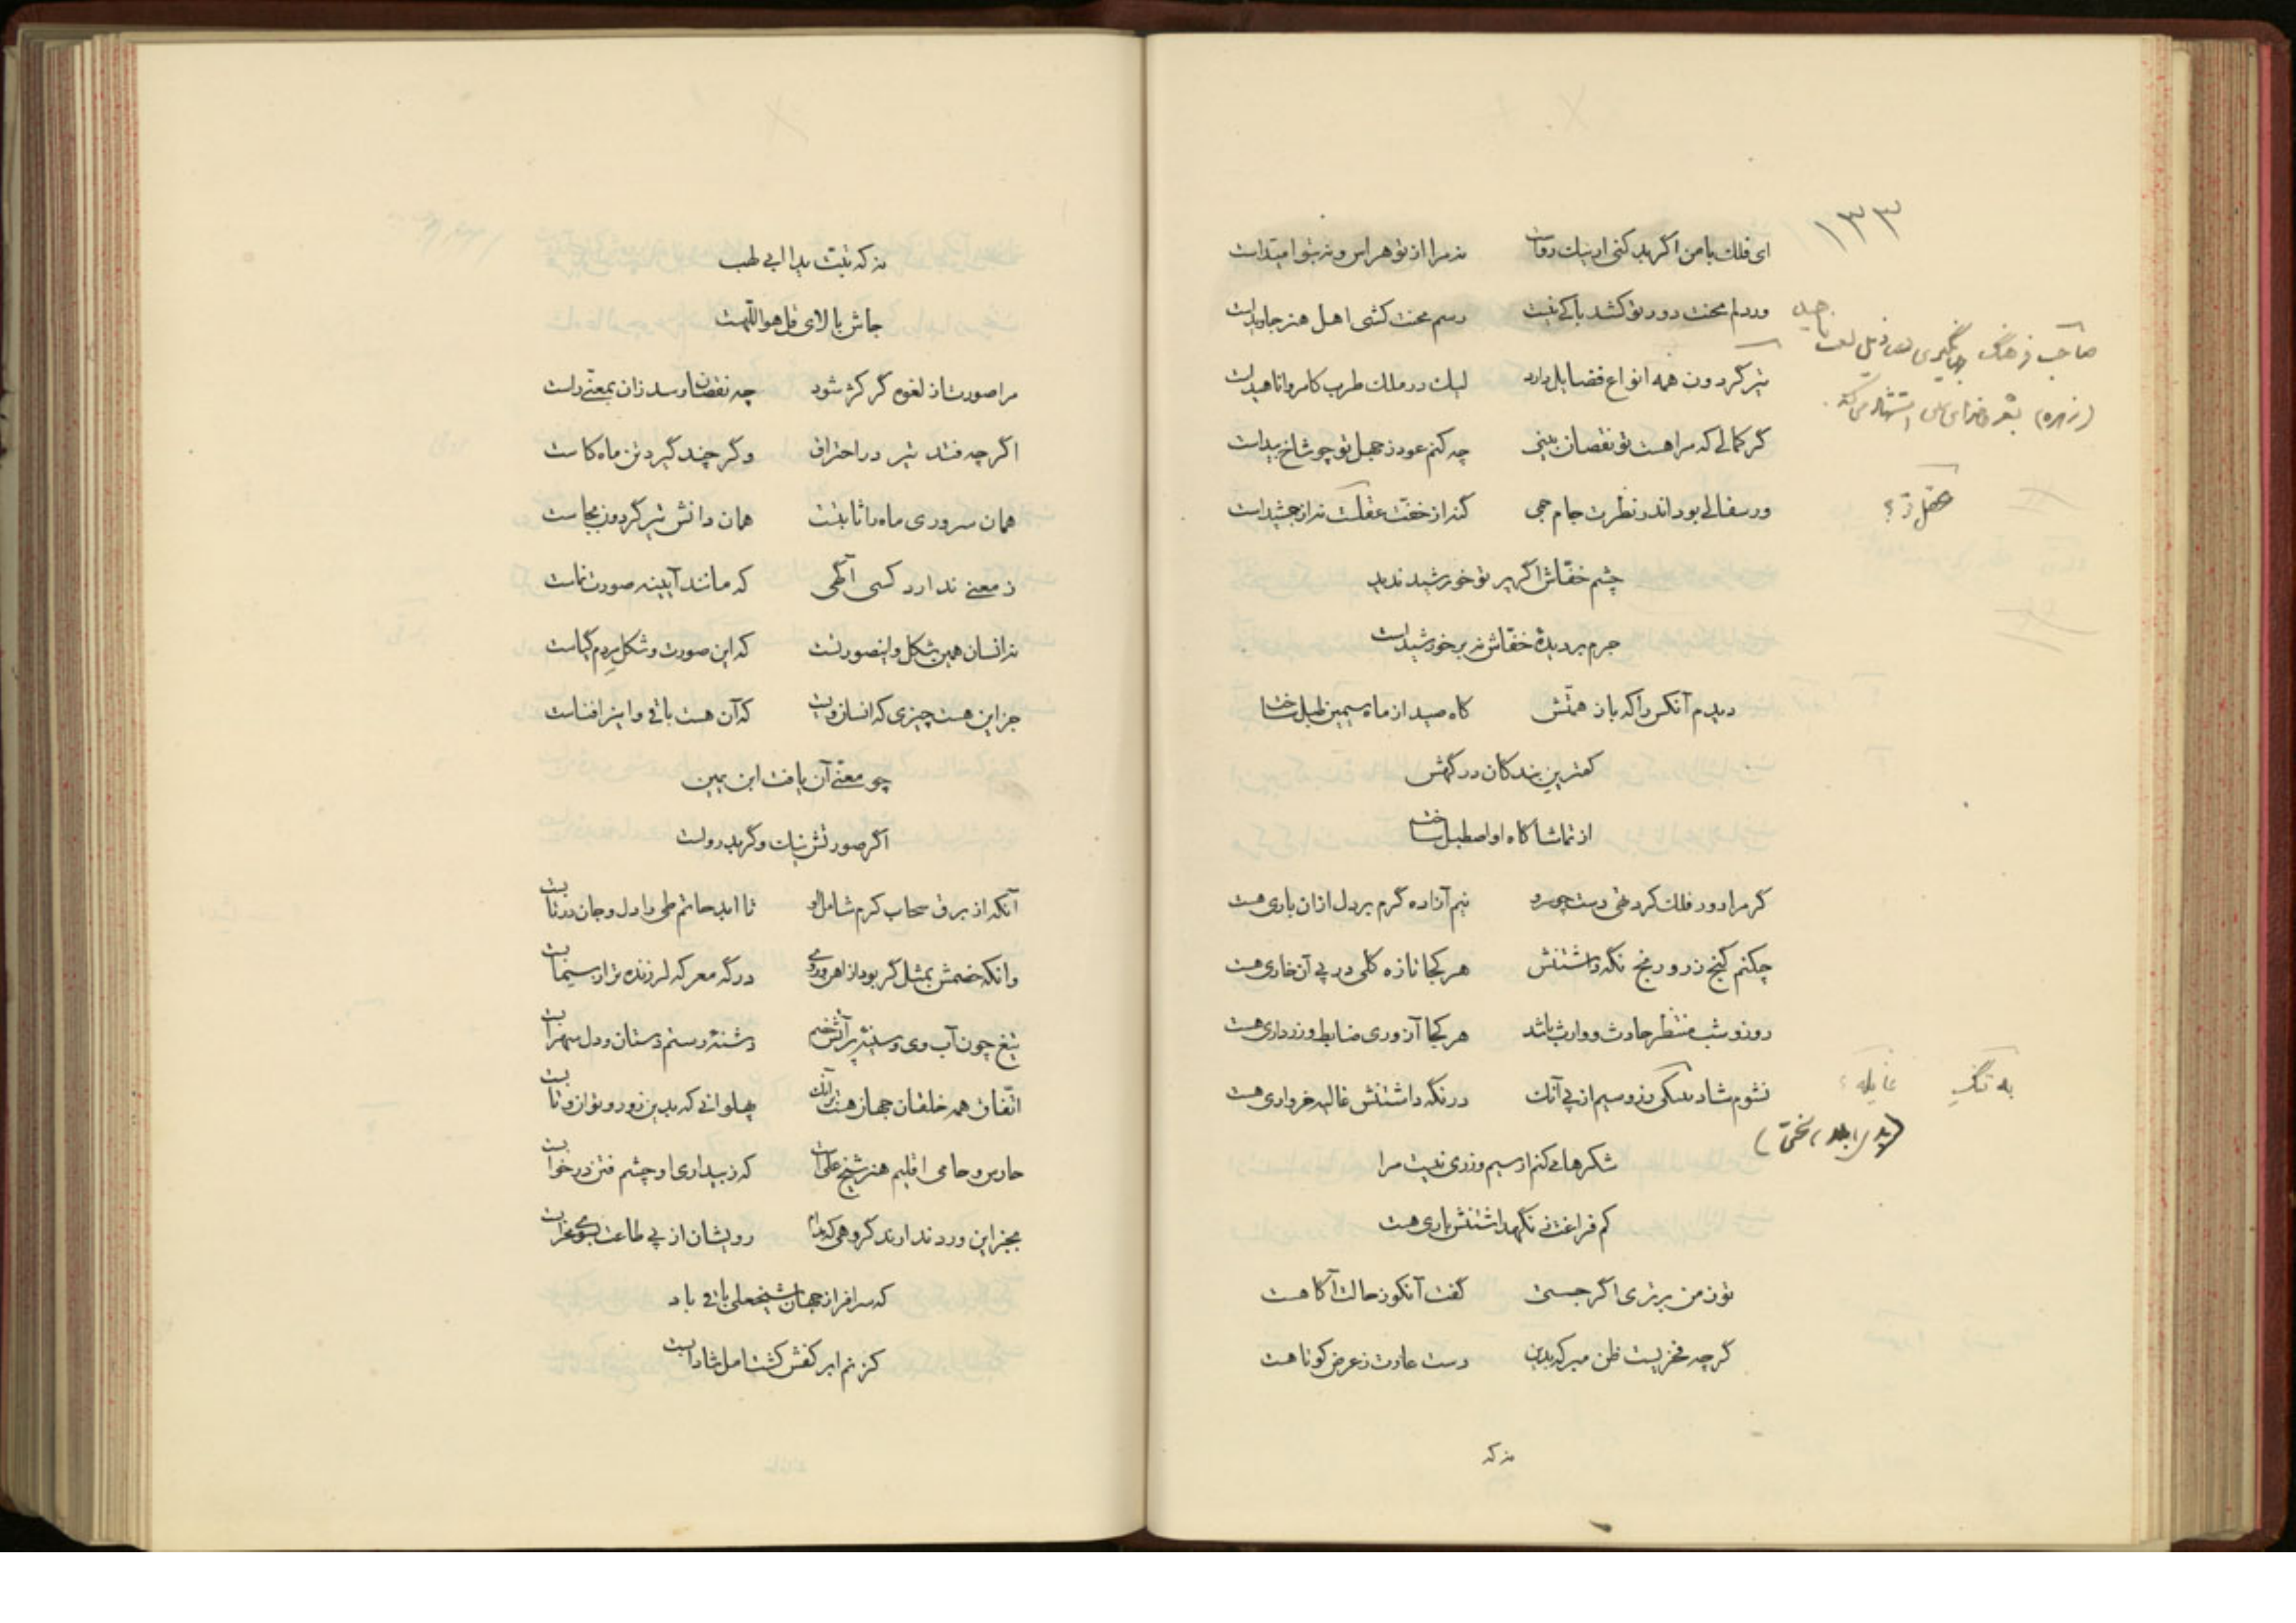 ۱۳۳
ای فلک با من اگر بد کنی ار نیک رواست نه مرا از تو هراس و نه بتو امیداست
ور دلم محنت دور تو کشد باکی نیست رسم محنت کشی اهل هنر جاویداست
صاحب فرهنگ جهانگیری در ذیل لغت ناهید
تیر گردون همه انواع فضایل دارد لیک در ملک طرب کامروا ناهیداست
(زهره) بشعر استشهاد می‌کند
گر کمالی که مرا هست تو نقصان بینی چه کنم عود ز جهل تو چو شاخ بیداست
ور سفالی بود اندر نظرت جام جمی گنه از خفت عقلت نه از جمشیداست
عقل تو؟
چشم خفّاش اگر پرتو خورشید ندید
جرم بر دیدهٔ خفّاش نه بر خورشیداست
دیدم آنکس را که باز همتش گاه صید از ماه سیمین طبل ساخت
کمترین بندگان درگهش
از تماشاگاه او اصطبل ساخت
گر مرا دور فلک کرد تهی دست چو سرو نیم آزاده گرم بر دل ازان باری هست
چکنم گنج زر و رنج نگه داشتنش هر کجا تازه گلی در پی آن خاری هست
روز و شب منتظر حادث و وارث باشد هر کجا آزوری ضابط و زرداری هست
نشوم شاد بیکی زر و سیم از پی آنک در نگه داشتنش غالیه خرواری هست
به تنگ غایله؟
شکرها می کنم ار سیم و زری نیست مرا
کم فراغت ز نگهداشتنش باری هست
تو ز من برتری اگر جستی گفت آنکو ز حالت آگاهست
گرچه فخریست ظن مبر که بدین دست عادت ز عرض کوتاهست
نه که
نه که تبّت یدا ابی لهب
جاش بالای قل هو اللهست
مرا صورت از لغوه گر کژ شود چه نقصان رسد زان بمعنی راست
اگر چه فتد تیر در احتراق و گر چند گیرد تن ماه کاست
همان سروری ماه را ثابتست همان دانش تیر گردون بجاست
ز معنی ندارد کسی آگهی که مانند آیینه صورت نماست
نه انسان همین شکل و این صورتست که این صورت و شکل مردم گیاست
جز این هست چیزی که انسان ویست که آن هست باقی و اینرا فناست
چو معنی آن یافت ابن یمین
اگر صورتش نیک و گر بد رواست
آنکه از برق سحاب کرم شامل او تا ابد حاتم طی را دل و جان در تابست
وانکه خصمش بمثل گر بود از اهن و روی در گه معرکه لرزنده تر از سیمابست
تیغ چون آب وی و سینهٔ پر آتش خصم دشنهٔ رستم دستان و دل سهرابست
اتّفاق همه خلقان جهان هست برآنک پهلوانی که بدین زور و توان و تابست
حارس و حامی اقلیم هنر شیخ علی است که ز بیداری او چشم فتن در خوابست
بجز این ورد ندارند گروهی که مدام رویشان از پی طاعت بسوی محرابست
که سر افراز جهان شیخعلی باقی باد
کز نم ابر کفش کشت امل شادابست